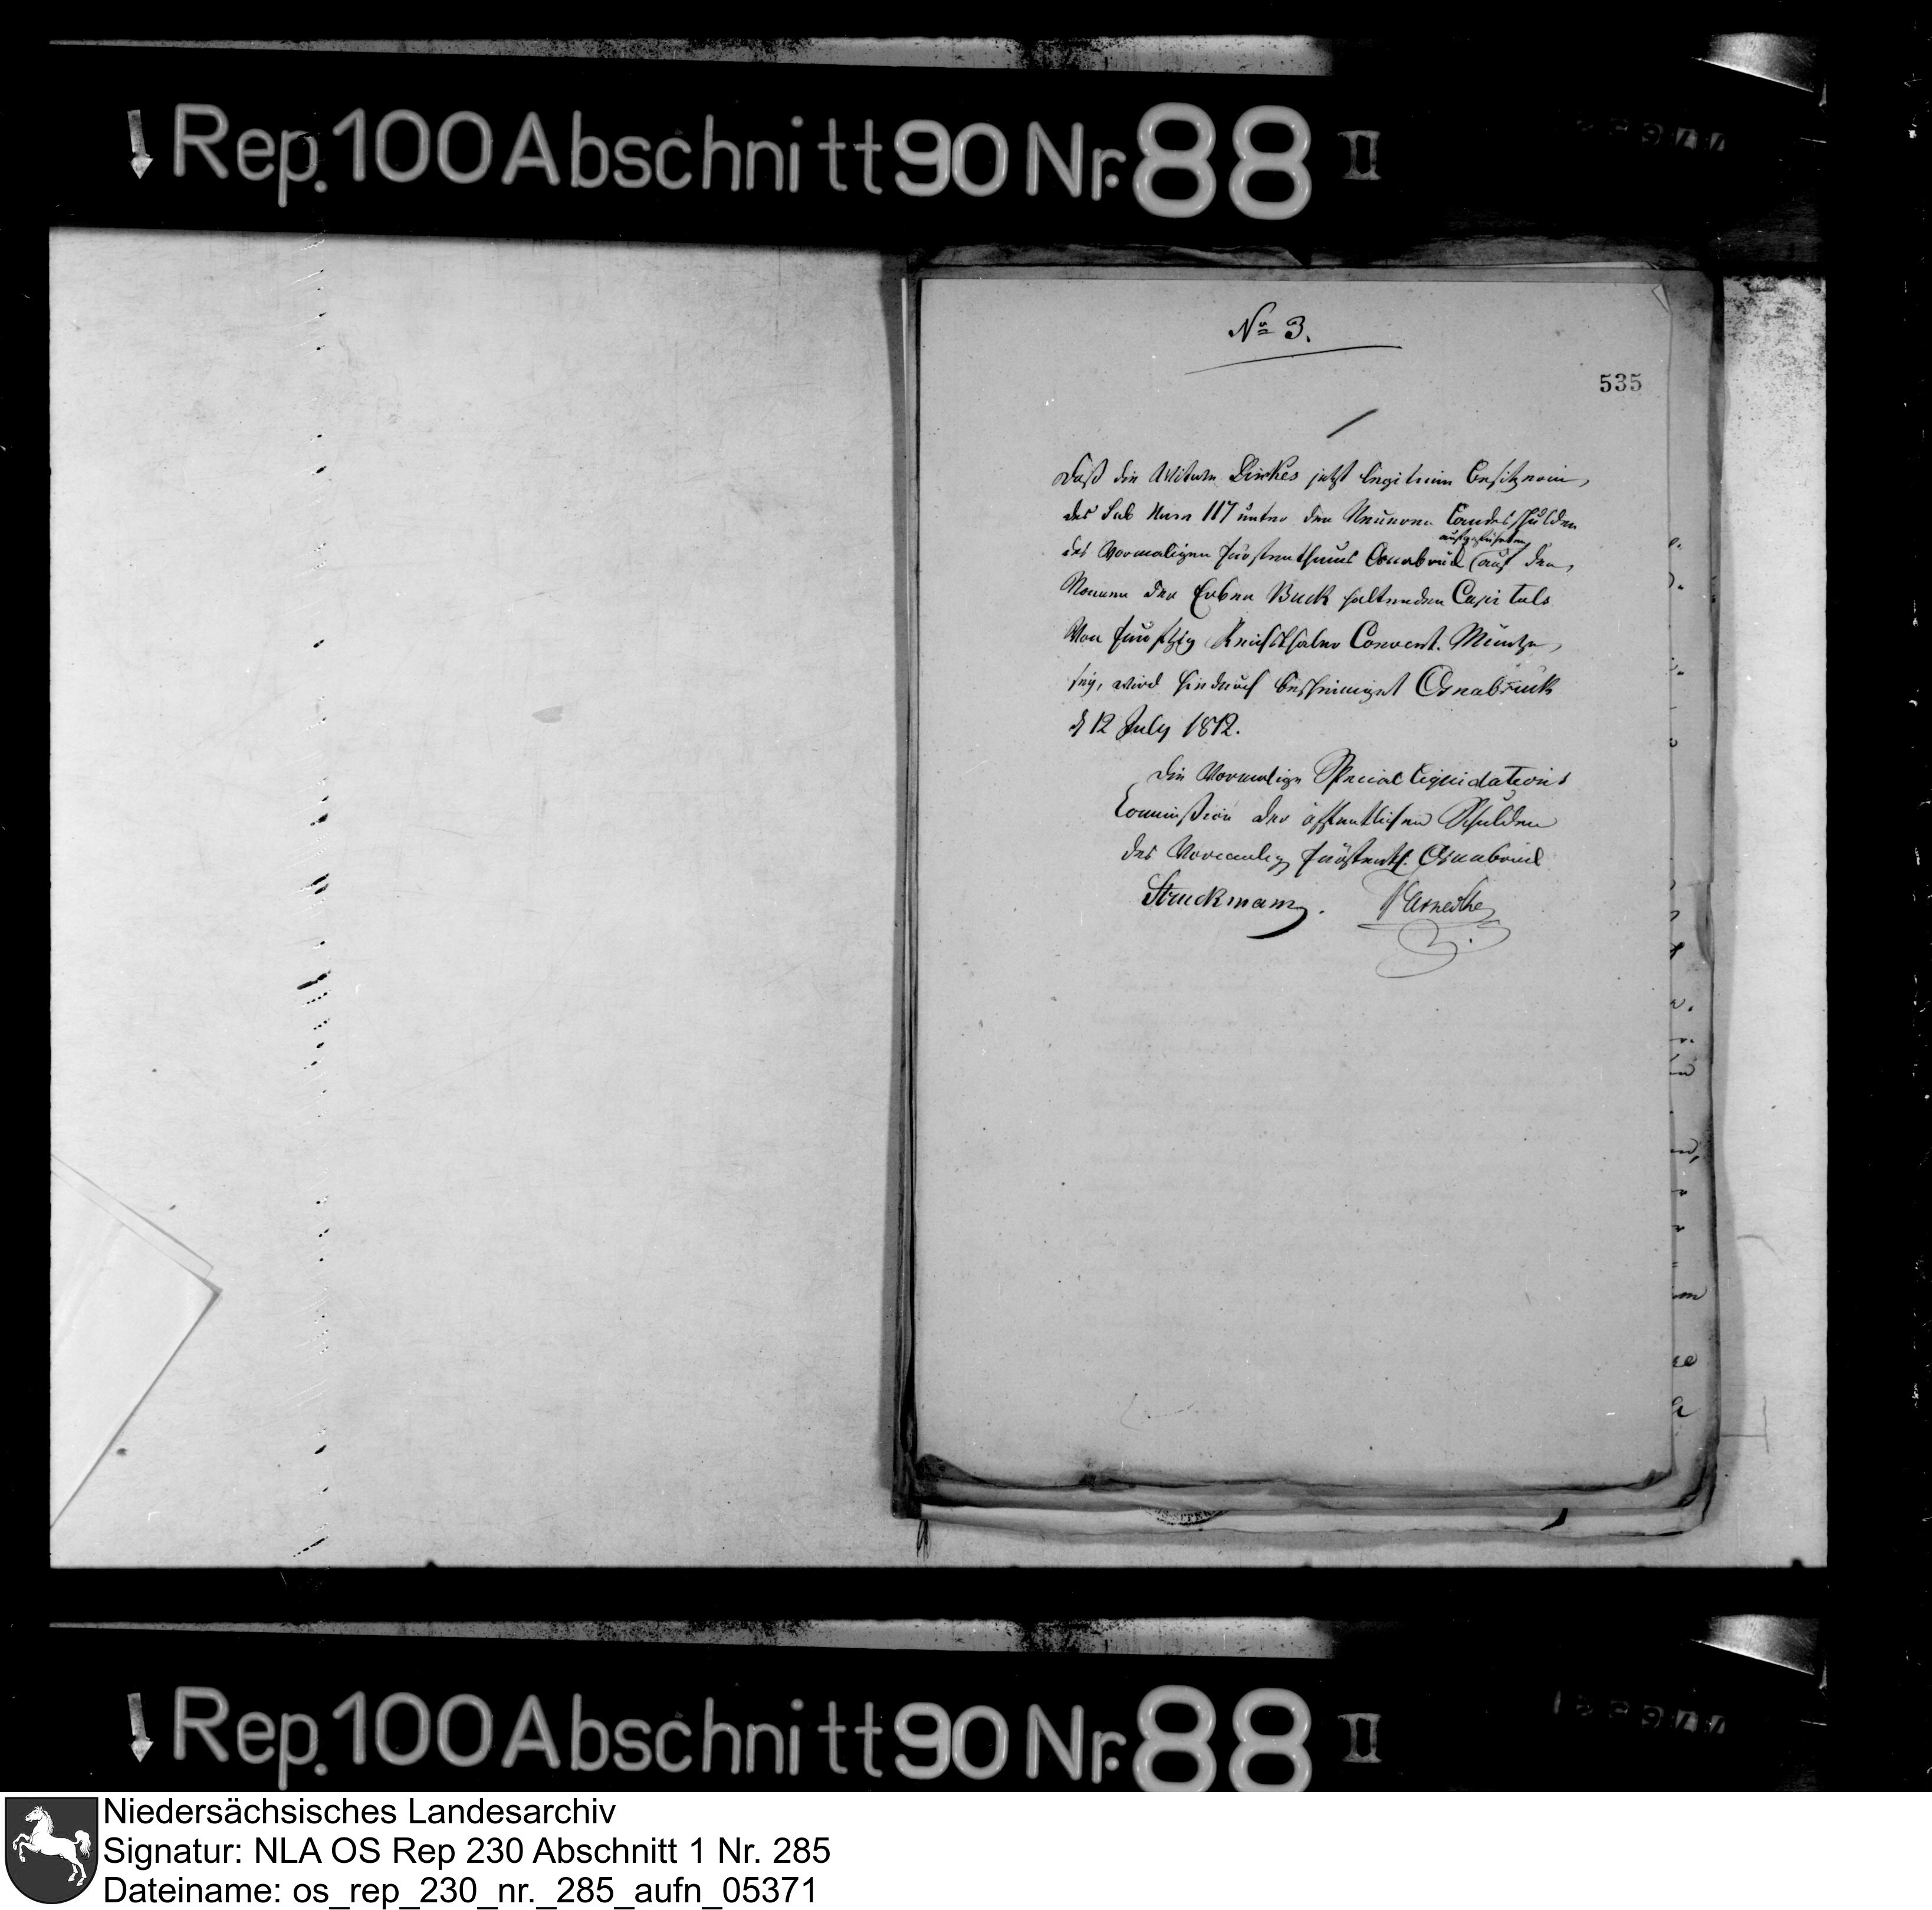 Rep. 100 Abschnitt 90 Nr. 88 II
No 3.
535
Daß die Witwe Dirkes jetzt legitime Besitzerin,
des sub Num 117 unter den Neueren Landesschulden
aufgeführten
des Vormaligen Fürstenthums Osnabrück (auf den,
Namen der Erben Buck haltenden Capitals
Von funfzig Reichsthaler Convent. Müntze,
sey, wird hiedurch bescheiniget Osnabrück
d 12 July 1812.
Die Vormalige Special Liquidations
Commißion der öffentlichen Schulden
des Vormalig Fürstenth. Osnabrück
Struckmann.
Rep. 100 Abschnitt 90 Nr. 88 II
Niedersächsisches Landesarchiv
Signatur: NLA OS Rep 230 Abschnitt 1 Nr. 285
Dateiname: os_rep_230_nr._285_aufn_05371